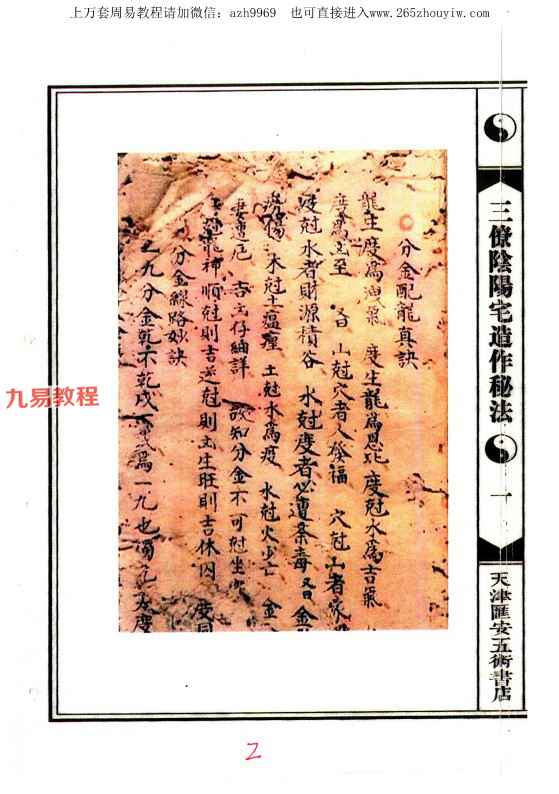 上万套周易教程请加微信：azh9969 也可直接进入www.265zhouyiw.com
三僚陰陽宅造作秘法
一
天津匯安五術書店
分金配龍真訣
龍生度為洩氣 度生龍為恩 度尅水為吉氣
度為凶 至 又曰 山尅穴者人發福 穴尅山者家
尅水者財源積谷 水尅度者必遭 毒 又曰 金
木尅土瘟 土尅水為疫 水尅火少亡 金
妻遭 吉凶仔細詳 說知分金不可尅坐
龍神順尅則吉逆尅則凶生旺則吉休囚 度
分金線路妙訣
九分金乾不乾戌不戌為一九也
九易教程
2